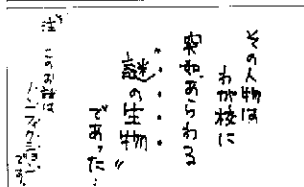 その人物は
わが校に
突如あらわる
謎の生物〃
であった…
注 このお話は
ノンフィクション
です。